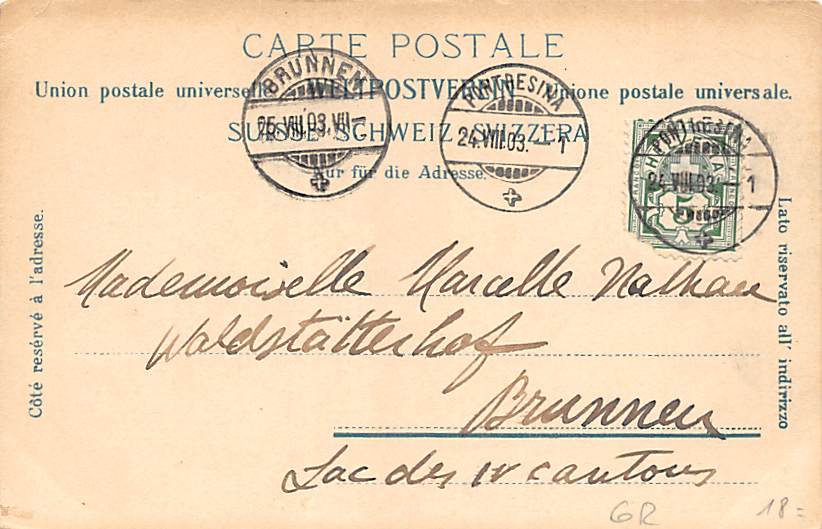 CARTE POSTALE
Union postale universelle. WELTPOSTVEREIN Unione postale universale.
SUISSE. SCHWEIZ. SVIZZERA
Nur für die Adresse.
BRUNNEN
25.VIII.03.VII-
PONTRESINA
24.VIII.03.–1
PONTRESINA
24.VIII.03.–1
5
Côté resérvé à l'adresse.
Lato riservato all' indirizzo
Mademoiselle Marcelle Nathan
Waldstätterhof
Brunnen
Lac des IV cantons
GR
18=